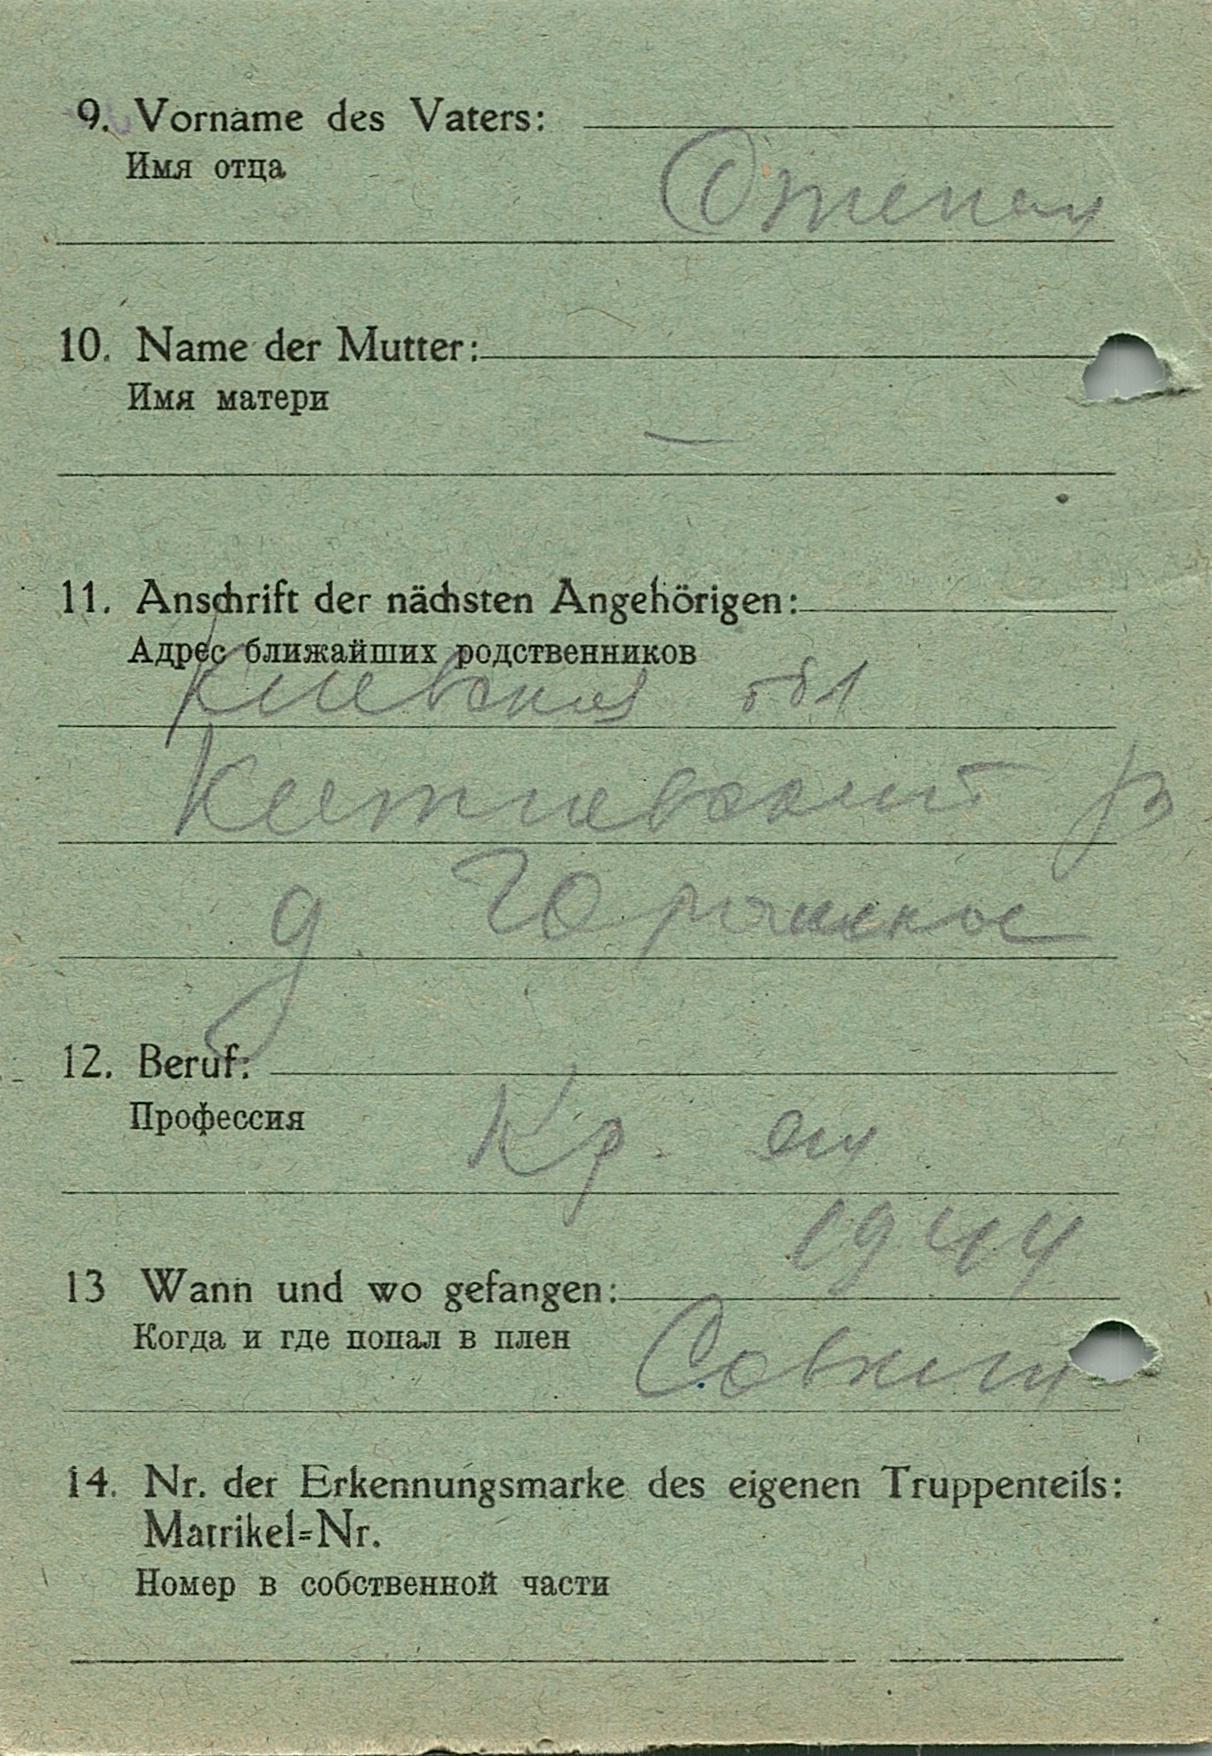 9. Vorname des Vaters:
Имя отца
10. Name der Mutter:
Имя матери
—
11. Anschrift der nächsten Angehörigen:
Адрес ближайших родственников
Киевская обл
р
д
12. Beruf:
Профессия
Кр.
1944
13 Wann und wo gefangen:
Когда и где попал в плен
14. Nr. der Erkennungsmarke des eigenen Truppenteils:
Matrikel=Nr.
Номер в собственной части